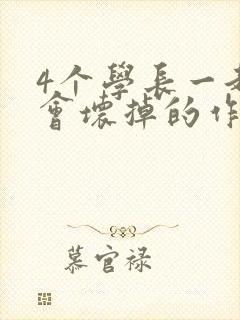 4个學長一起
會壞掉的作
慕官禄